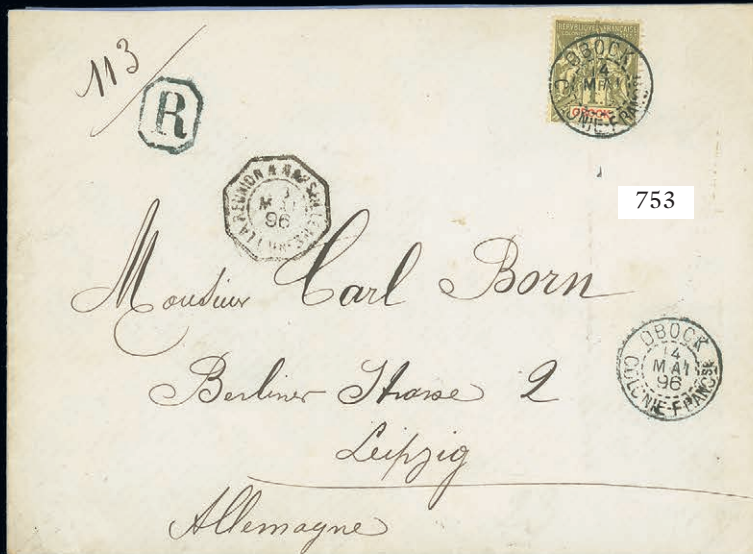 113
R
REPUBLIQUE FRANCAISE
OBOCK
14
MAI
COLONIE-FRANCSE
OBOCK
753
LA REUNION A MARSEILLE
MAI
96
Monsieur Carl Born
Berliner Strasse 2
Leipzig
Allemagne
OBOCK
14
MAI
96
COLONIE-FRANCSE